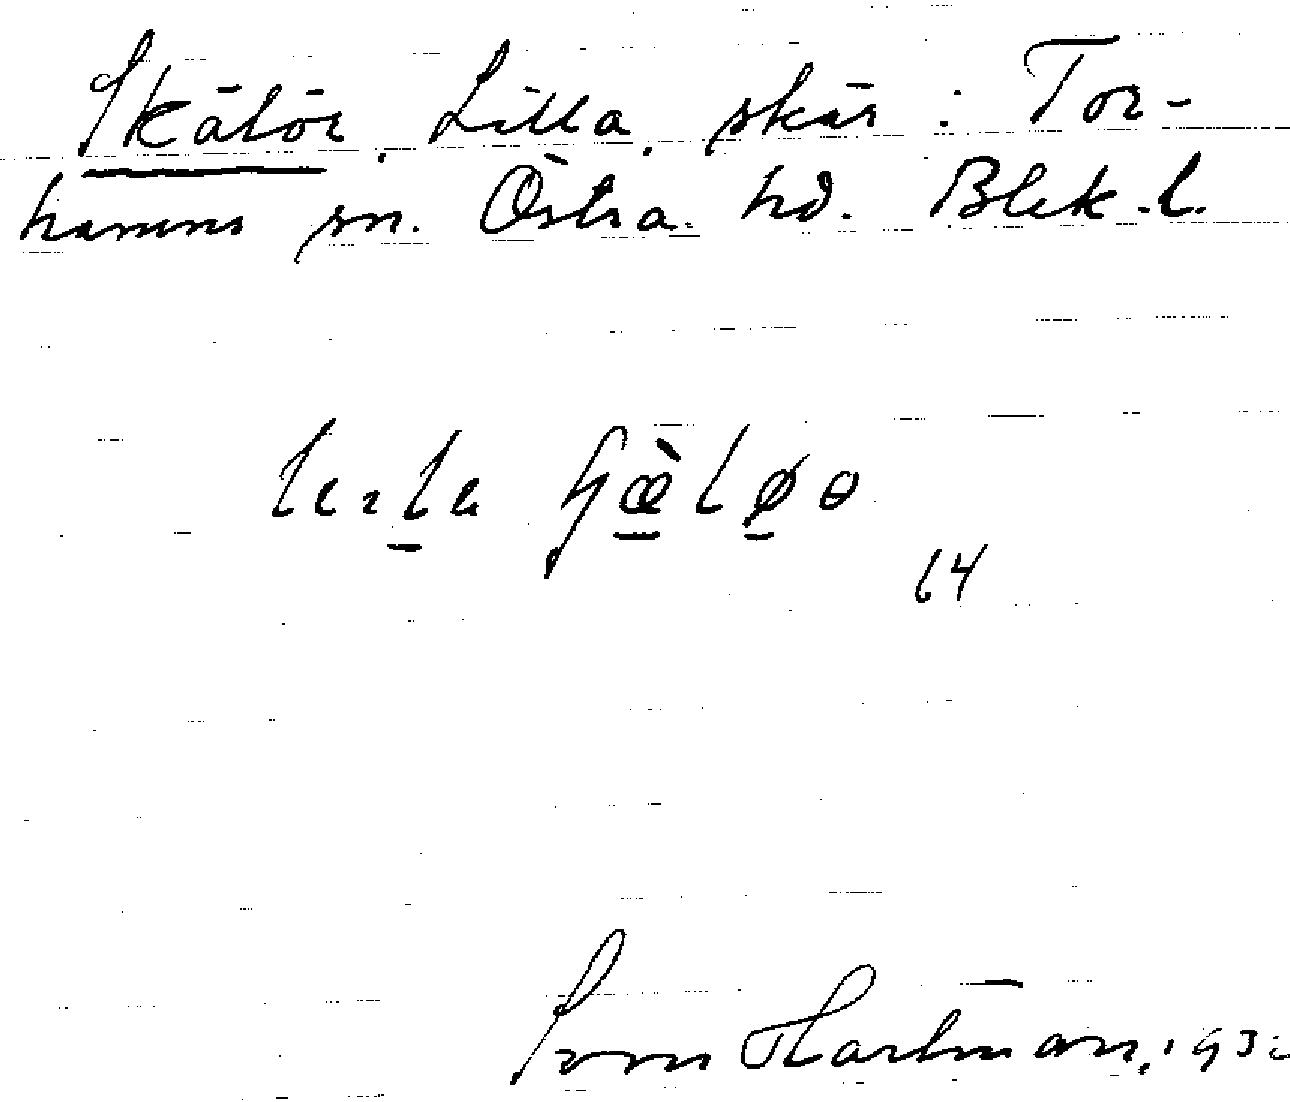 Skälör, Lilla, skär: Tor-
hamns sn. Östra hd. Blek. l.
64
Sven Hartman, 193